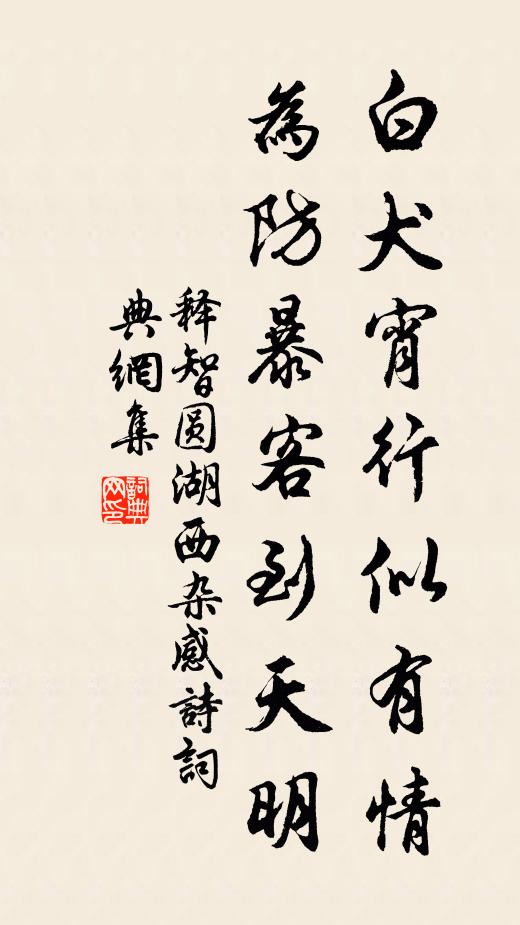 白犬宵行似有情
為防暴客到天明
释智圆湖西杂感詩詞
典網集
詞典
网印